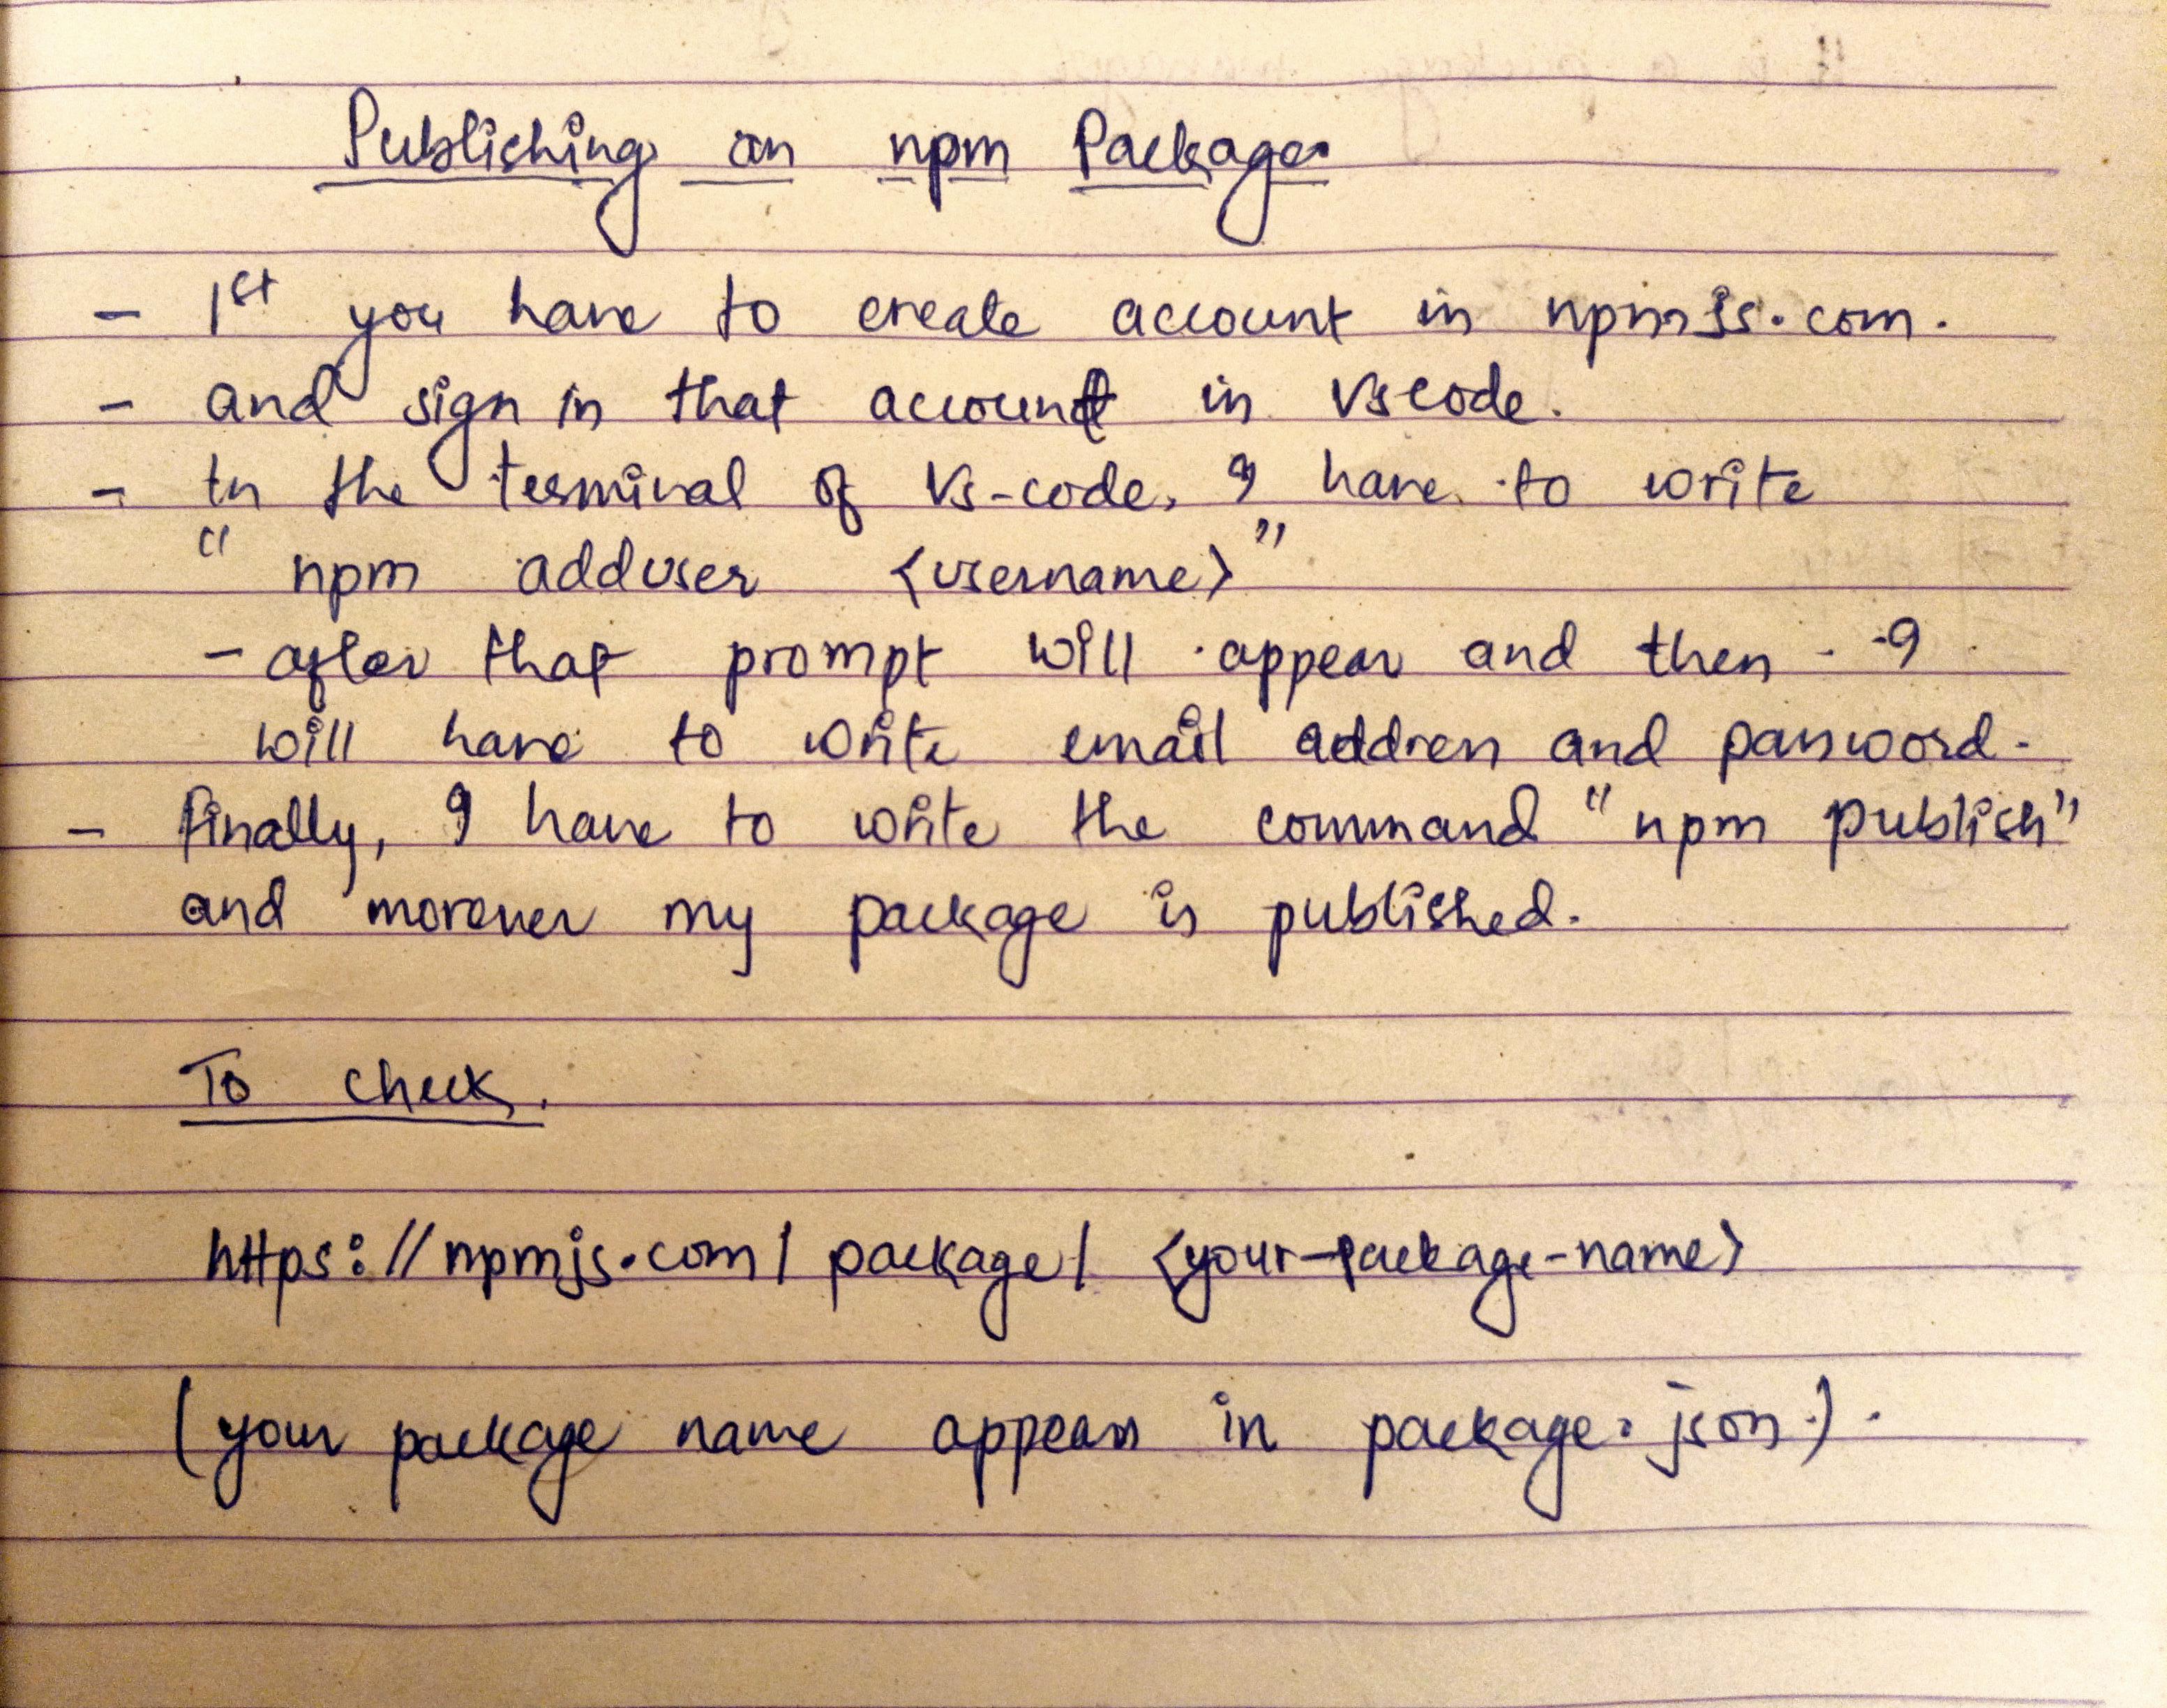 Publishing an npm Package
- 1st you have to create account in npmjs.com.
- and sign in that account in Vscode.
- In the terminal of Vs-code, I have to write
" npm adduser <username> "
- after that prompt will appear and then I
will have to write email address and password.
- finally, I have to write the command "npm publish"
and morover my package is published.
To check.
https://npmjs.com/package/ <your-package-name>
(your package name appears in package.json).